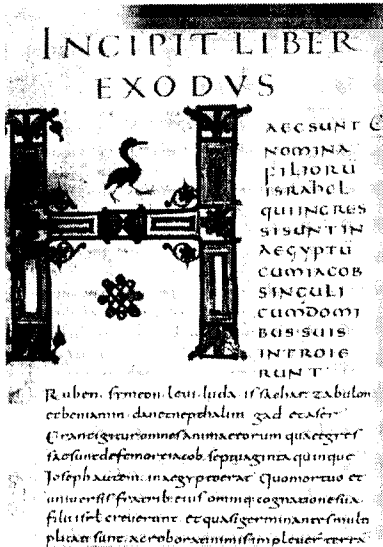 INCIPIT LIBER
EXODVS
HAEC SUNT
NOMINA
FILIORU
ISRAHEL
QUI INGRES
SI SUNT IN
AEGYPTU
CUM IACOB
SINGULI
CUM DOMI
BUS SUIS
INTROIE
RUNT
Ruben. symeon. levi. iuda. issachar. zabulon
et beniamin. dan et nepthalim. gad et aser
Erant igitur omnes animae eorum quae egres
sae sunt de femore iacob. septuaginta quinque
Ioseph autem in aegypto erat Quo mortuo et
universis fratrib; eius omniq; cognatione sua
filii isrl creverunt. et quasi germinantes multi
plicati sunt. ac roborati nimis impleuer terra